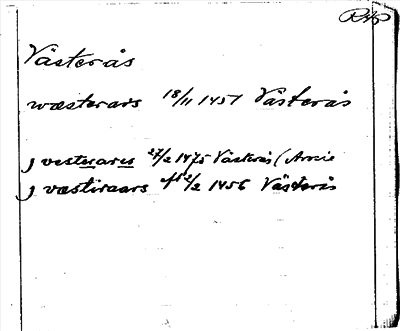 RAp
Västerås
wæsterars 18/11 1451 Västerås
J vesterares 27/2 1475 Västerås (
J væstiraars 2/2 1456 Västerås